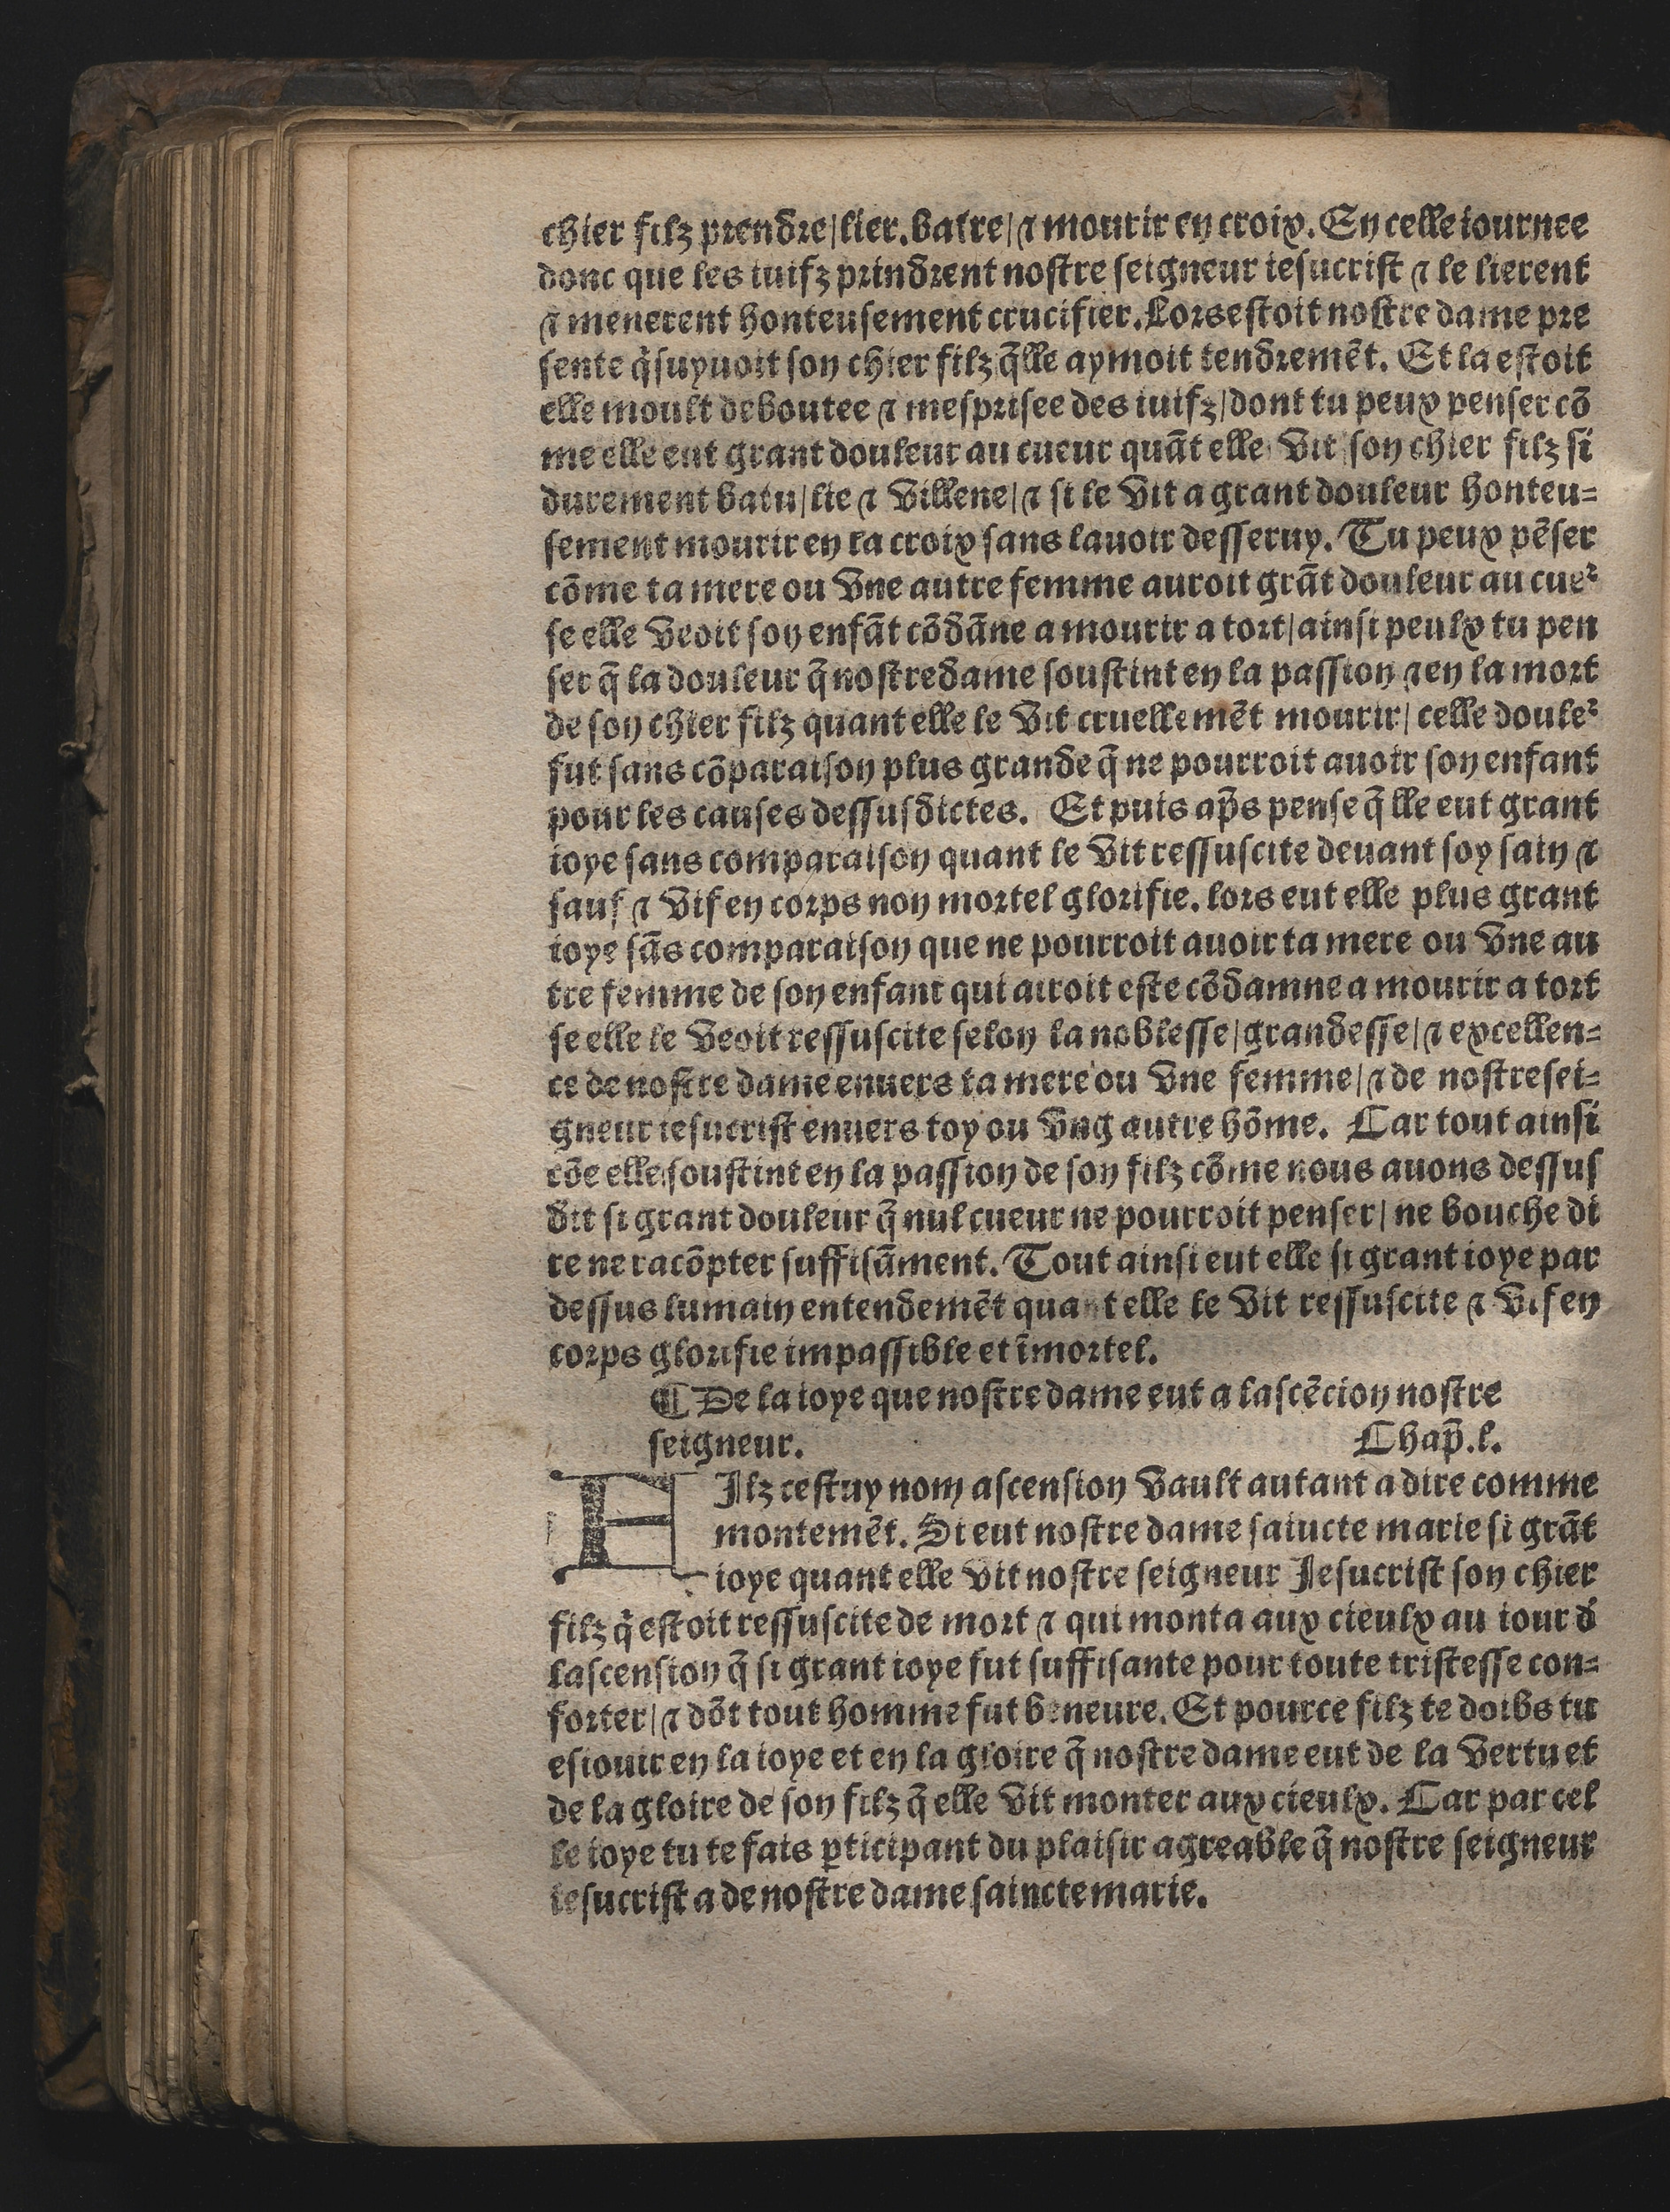 chier filz prendre/lier.batre/⁊ mourir en croix. En celle iournee
donc que les iuifz prindrent nostre seigneur iesucrist ⁊ le lierent
⁊ menerent honteusement crucifier. Lors estoit nostre dame pre
sente q̃ suyuoit son chier filz q̃lle aymoit tendremẽt. Et la estoit
elle moult deboutee ⁊ mesprisee des iuifz/dont tu peux penser cõ
me elle eut grant douleur au cueur quãt elle vit son chier filz si
durement batu/lie ⁊ villene/⁊ si le vit a grant douleur honteu-
sement mourir en la croix sans lauoir desseruy. Tu peux pẽser
cõme ta mere ou vne autre femme auroit grãt douleur au cueꝛ
se elle veoit son enfãt cõdãne a mourir a tort/ainsi peulx tu pen
ser q̃ la douleur q̃ nostredame soustint en la passion ⁊ en la mort
de son chier filz quant elle le vit cruellemẽt mourir/ celle douleꝛ
fut sans cõparaison plus grande q̃ ne pourroit auoir son enfant
pour les causes dessusdictes. Et puis ap̃s pense q̃ lle eut grant
ioye sans comparaison quant le vit ressuscite deuant soy sain ⁊
sauf ⁊ vif en corps non mortel glorifie. lors eut elle plus grant
ioye sãs comparaison que ne pourroit auoir ta mere ou vne au
tre femme de son enfant qui auroit este cõdamne a mourir a tort
se elle le veoit ressuscite selon la noblesse/grandesse/⁊ excellen-
ce de nostre dame enuers ta mere ou vne femme/⁊ de nostre sei-
gneur iesucrist enuers toy ou vng autre hõme. Car tout ainsi
cõe elle soustint en la passion de son filz cõme nous auons dessus
dit si grant douleur q̃ nul cueur ne pourroit penser/ ne bouche di
re ne racõpter suffisãment. Tout ainsi eut elle si grant ioye par
dessus lumain entendemẽt quant elle le vit ressuscite ⁊ vif en
corps glorifie impassible et ĩmortel.
¶ De la ioye que nostre dame eut a lascẽcion nostre
seigneur. Chap̃.l.
FIlz cestuy nom ascension vault autant a dire comme
montemẽt. Si eut nostre dame saiucte marie si grãt
ioye quant elle vit nostre seigneur Iesucrist son chier
filz q̃ estoit ressuscite de mort ⁊ qui monta aux cieulx au iour d'
lascension q̃ si grant ioye fut suffisante pour toute tristesse con-
forter/⁊ dõt tout homme fut beneure. Et pource filz te doibs tu
esiouir en la ioye et en la gloire q̃ nostre dame eut de la vertu et
de la gloire de son filz q̃ elle vit monter aux cieulx. Car par cel
le ioye tu te fais ꝑticipant du plaisir agreable q̃ nostre seigneur
iesucrist a de nostre dame saincte marie.